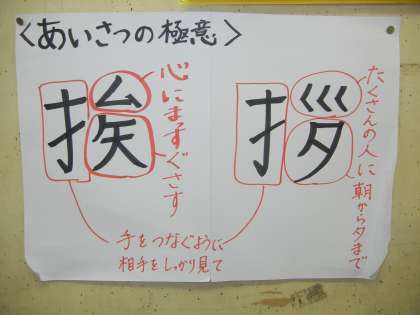 〈あいさつの極意〉
挨
拶
心にまっすぐさす
たくさんの人に
朝から夕まで
手をつなぐように
相手をしっかり見て